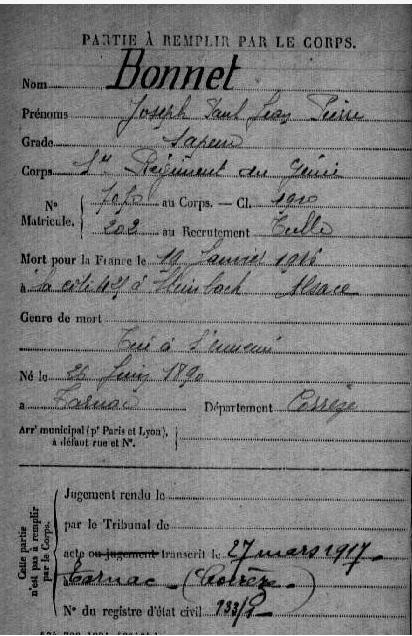 PARTIE À REMPLIR PAR LE CORPS.
Nom Bonnet
Prénoms Joseph Paul Léon Pierre
Grade Sapeur
Corps 1er Régiment du Génie
Nº au Corps. — Cl. 1910
Matricule. 202 au Recrutement Tulle
Mort pour la France le 19 Janvier 1915
à la côte d' Steinbach Alsace
Genre de mort
Tué à l'ennemi
Né le Juin 1890
à Tarnac Département Corrèze
Arrt municipal (pr Paris et Lyon),
à défaut rue et Nº.
Cette partie
n'est pas à remplir
par le Corps.
Jugement rendu le
par le Tribunal de
acte ou jugement transcrit le 27 mars 1917
à Tarnac (Corrèze)
Nº du registre d'état civil 133/9